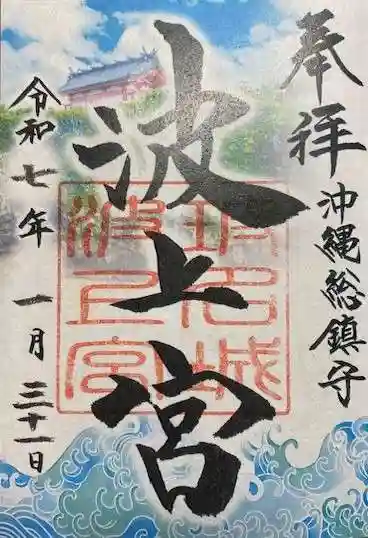 奉拝
沖縄総鎮守
波上宮
波上宮
令和七年 一月 三十一日